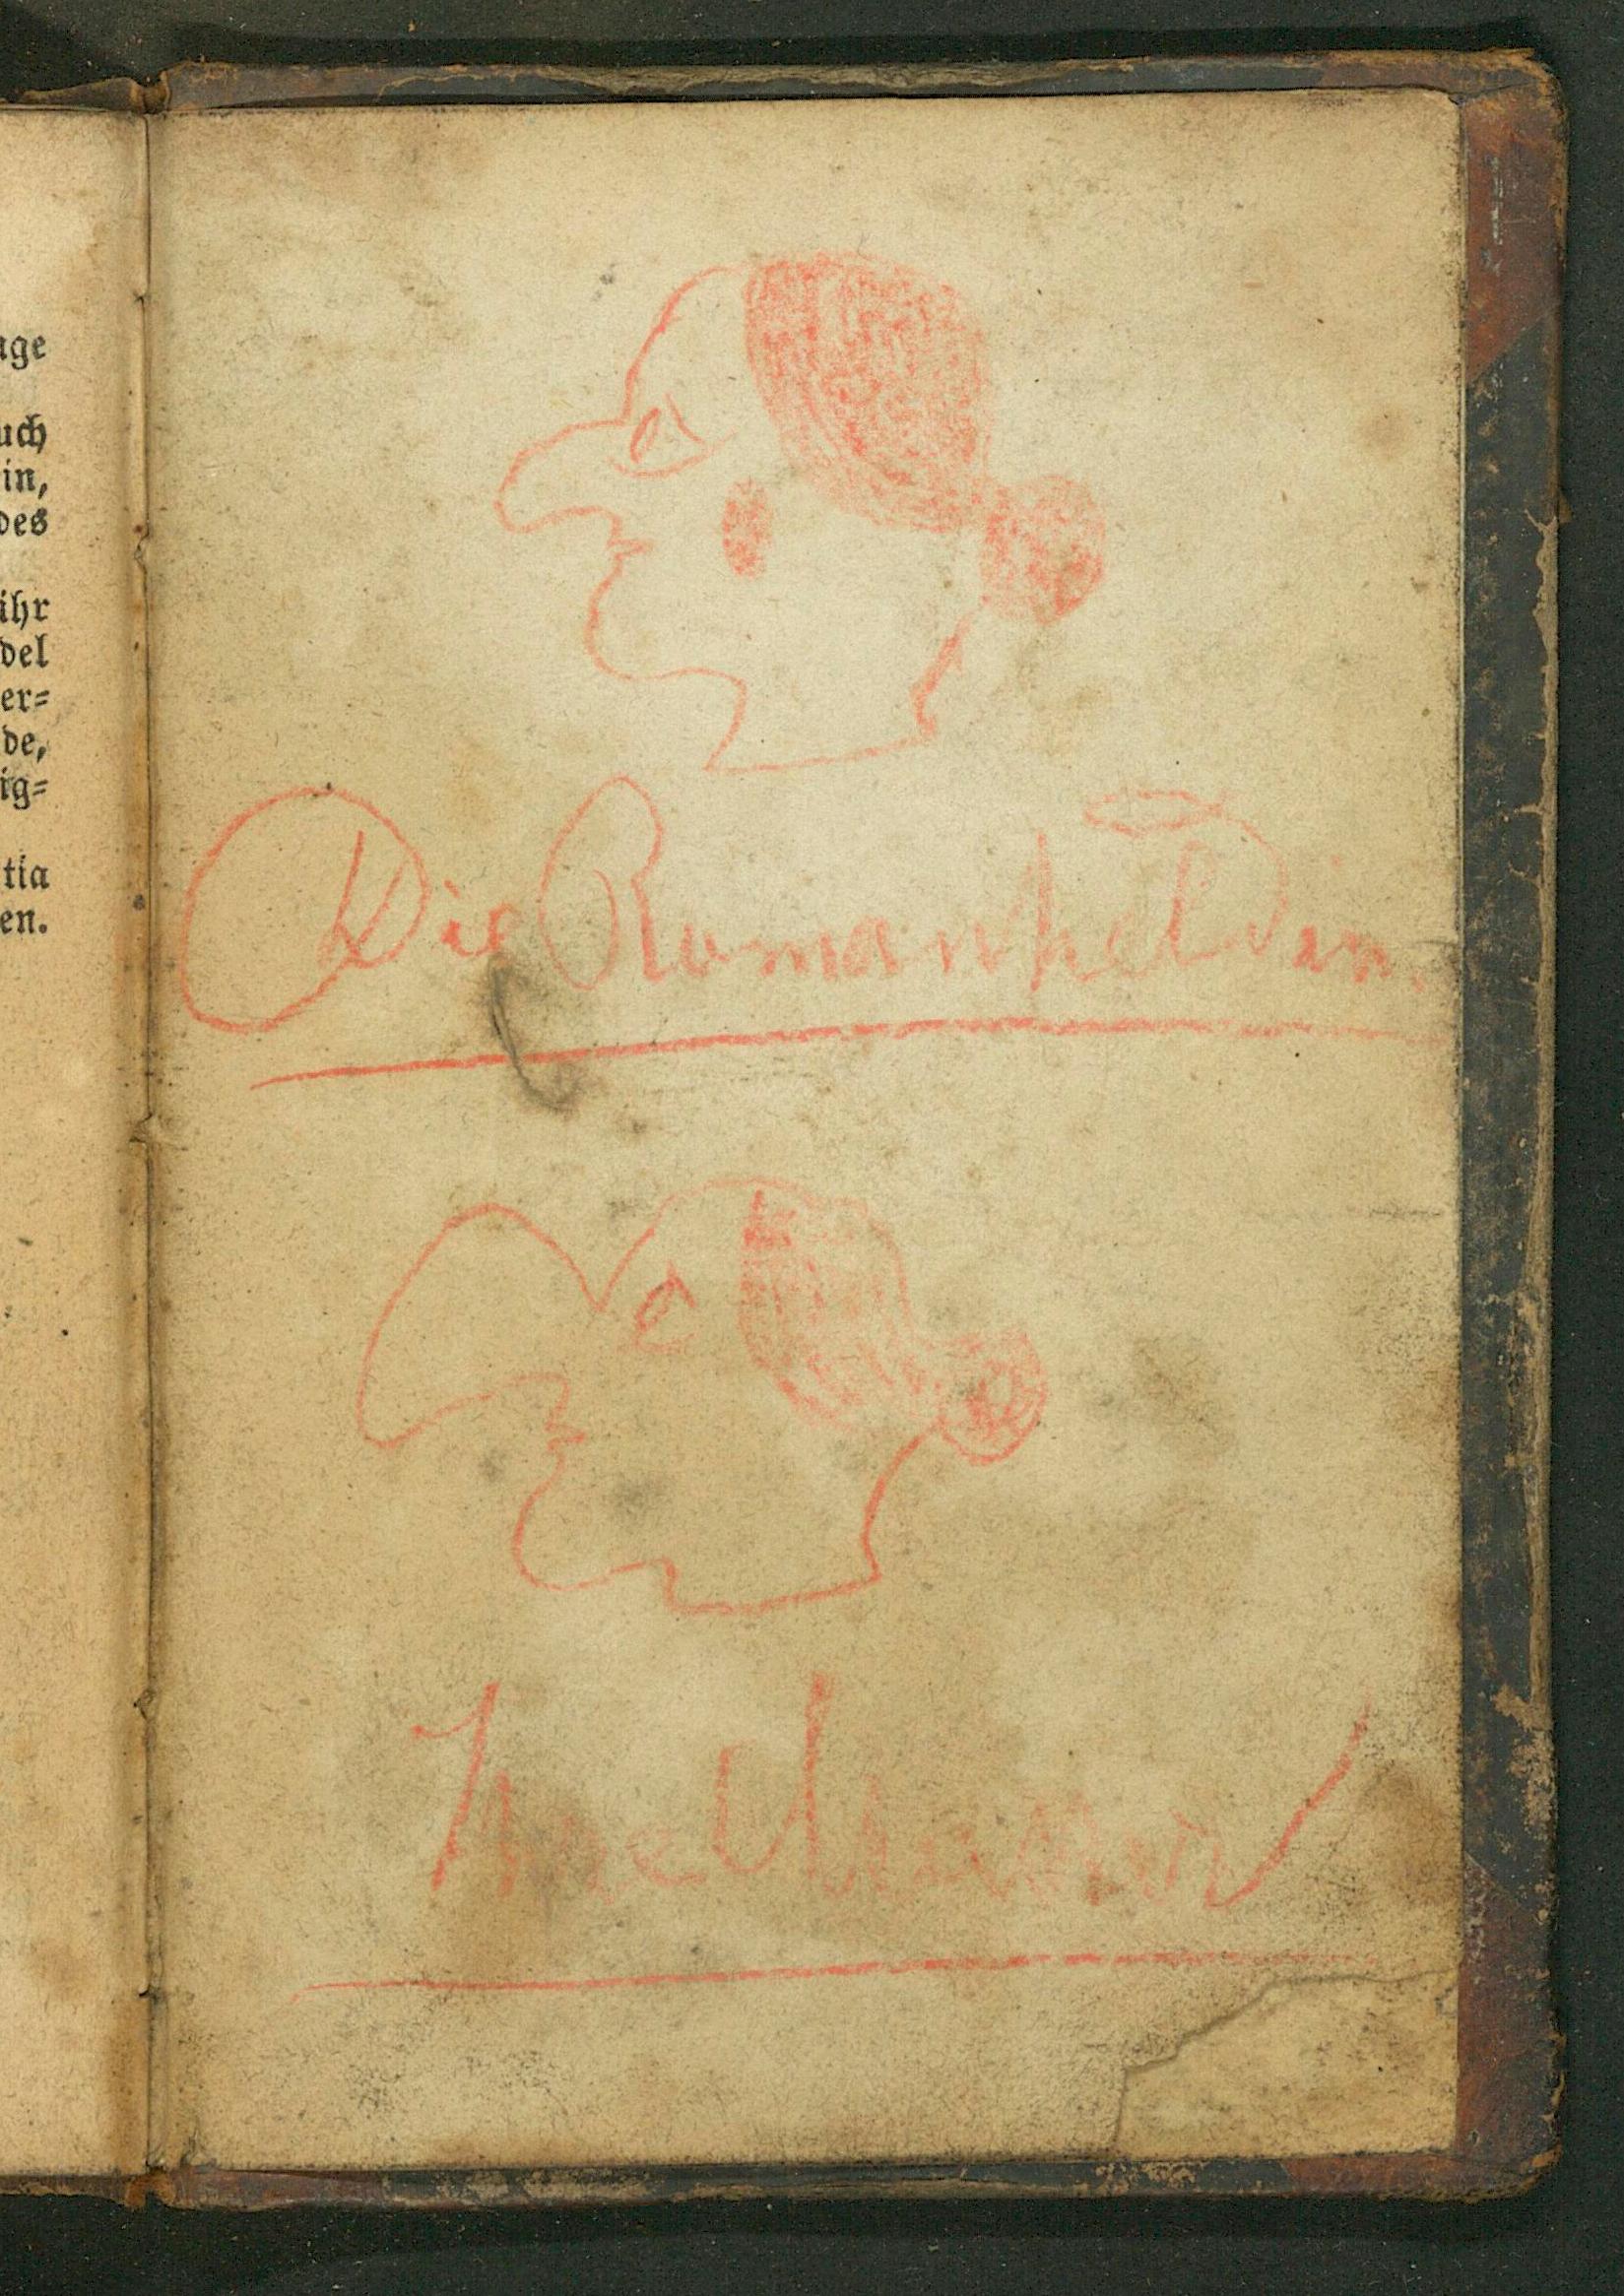 age
uch
in,
des
ihr
del
er=
de,
ig=
tia
en.
Die Romanheldin.